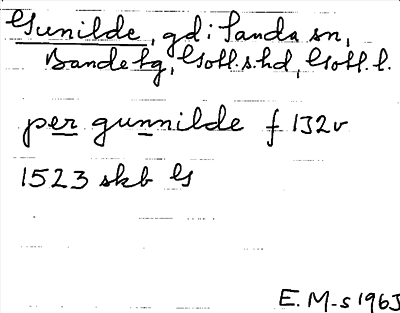 Gunilde, gd i Sanda sn,
Bande tg, Gotl.s.hd, Gotl.l.
per gunnilde f 132v
1523 skb G
E. M-s 1963